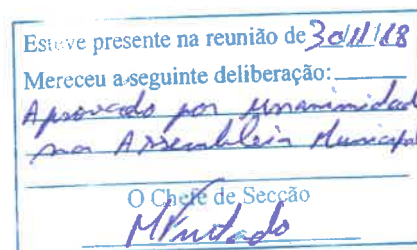 Esteve presente na reunião de 30/11/18
Mereceu a seguinte deliberação:
Aprovado por unanimidad
na Assembleia Municipal
O Chefe de Secção